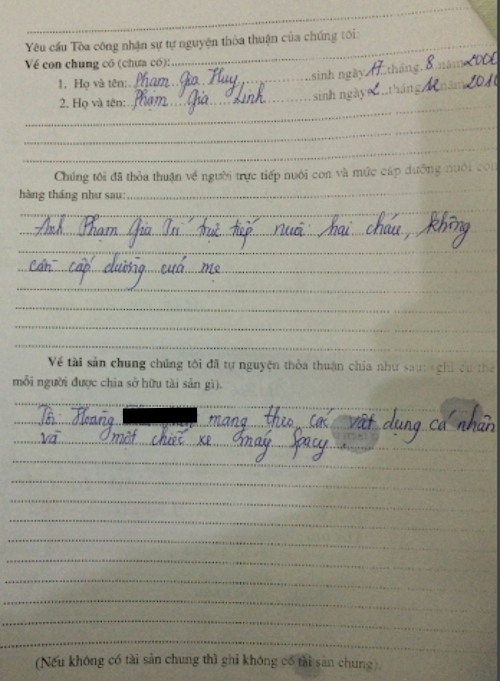 Yêu cầu Tòa công nhận sự tự nguyện thỏa thuận của chúng tôi:
Về con chung có (chưa có):
1. Họ và tên: Phạm Gia Huy sinh ngày 17 tháng 8 năm
2. Họ và tên: Phạm Gia Linh sinh ngày 2 tháng 12 năm 2010
Chúng tôi đã thỏa thuận về người trực tiếp nuôi con và mức cấp dưỡng nuôi con
hàng tháng như sau:
Anh Phạm Gia Trí trực tiếp nuôi hai cháu, không
cần cấp dưỡng cuả mẹ
Về tài sản chung chúng tôi đã tự nguyện thỏa thuận chia như sau: (ghi cụ thể
mỗi người được chia sở hữu tài sản gì).
Tôi Hoàng mang theo các vật dụng cá nhân
và một chiếc xe máy Spacy.
(Nếu không có tài sản chung thì ghi không có tài sản chung).